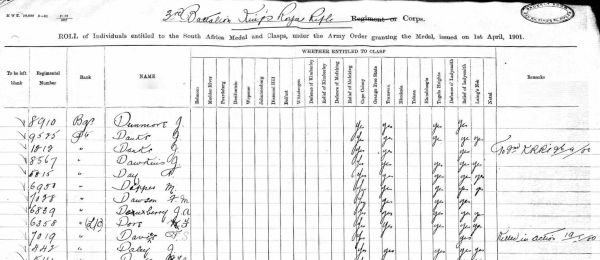 3rd Battalion King's Royal Rifle Regiment or Corps.
ROLL of Individuals entitled to the South Africa Medal and Clasps, under the Army Order granting the Medal, issued on 1st April, 1901.
WHETHER ENTITLED TO CLASP
To be left blank Regimental Number Rank NAME Belmont Modder River Paardeberg Driefontein Wepener Johannesburg Diamond Hill Belfast Wittebergen Defence of Kimberley Relief of Kimberley Defence of Mafeking Relief of Mafeking Cape Colony Orange Free State Transvaal Rhodesia Talana Elandslaagte Tugela Heights Defence of Ladysmith Relief of Ladysmith Laing's Nek Natal Remarks
8910 Dunmore J yes yes yes yes
9575 " Danks J yes yes yes yes yes
1812 " Danks J yes yes yes
8567 " Dawkins J yes yes yes yes yes
8815 " Day yes yes yes yes yes
6950 " M yes yes yes yes yes
" Dawson F M yes yes yes yes
6839 " J A yes yes yes yes yes
6358 " Dore yes yes yes yes yes
7019 " Davis yes yes Killed in action
442 " Daley J yes yes yes yes yes